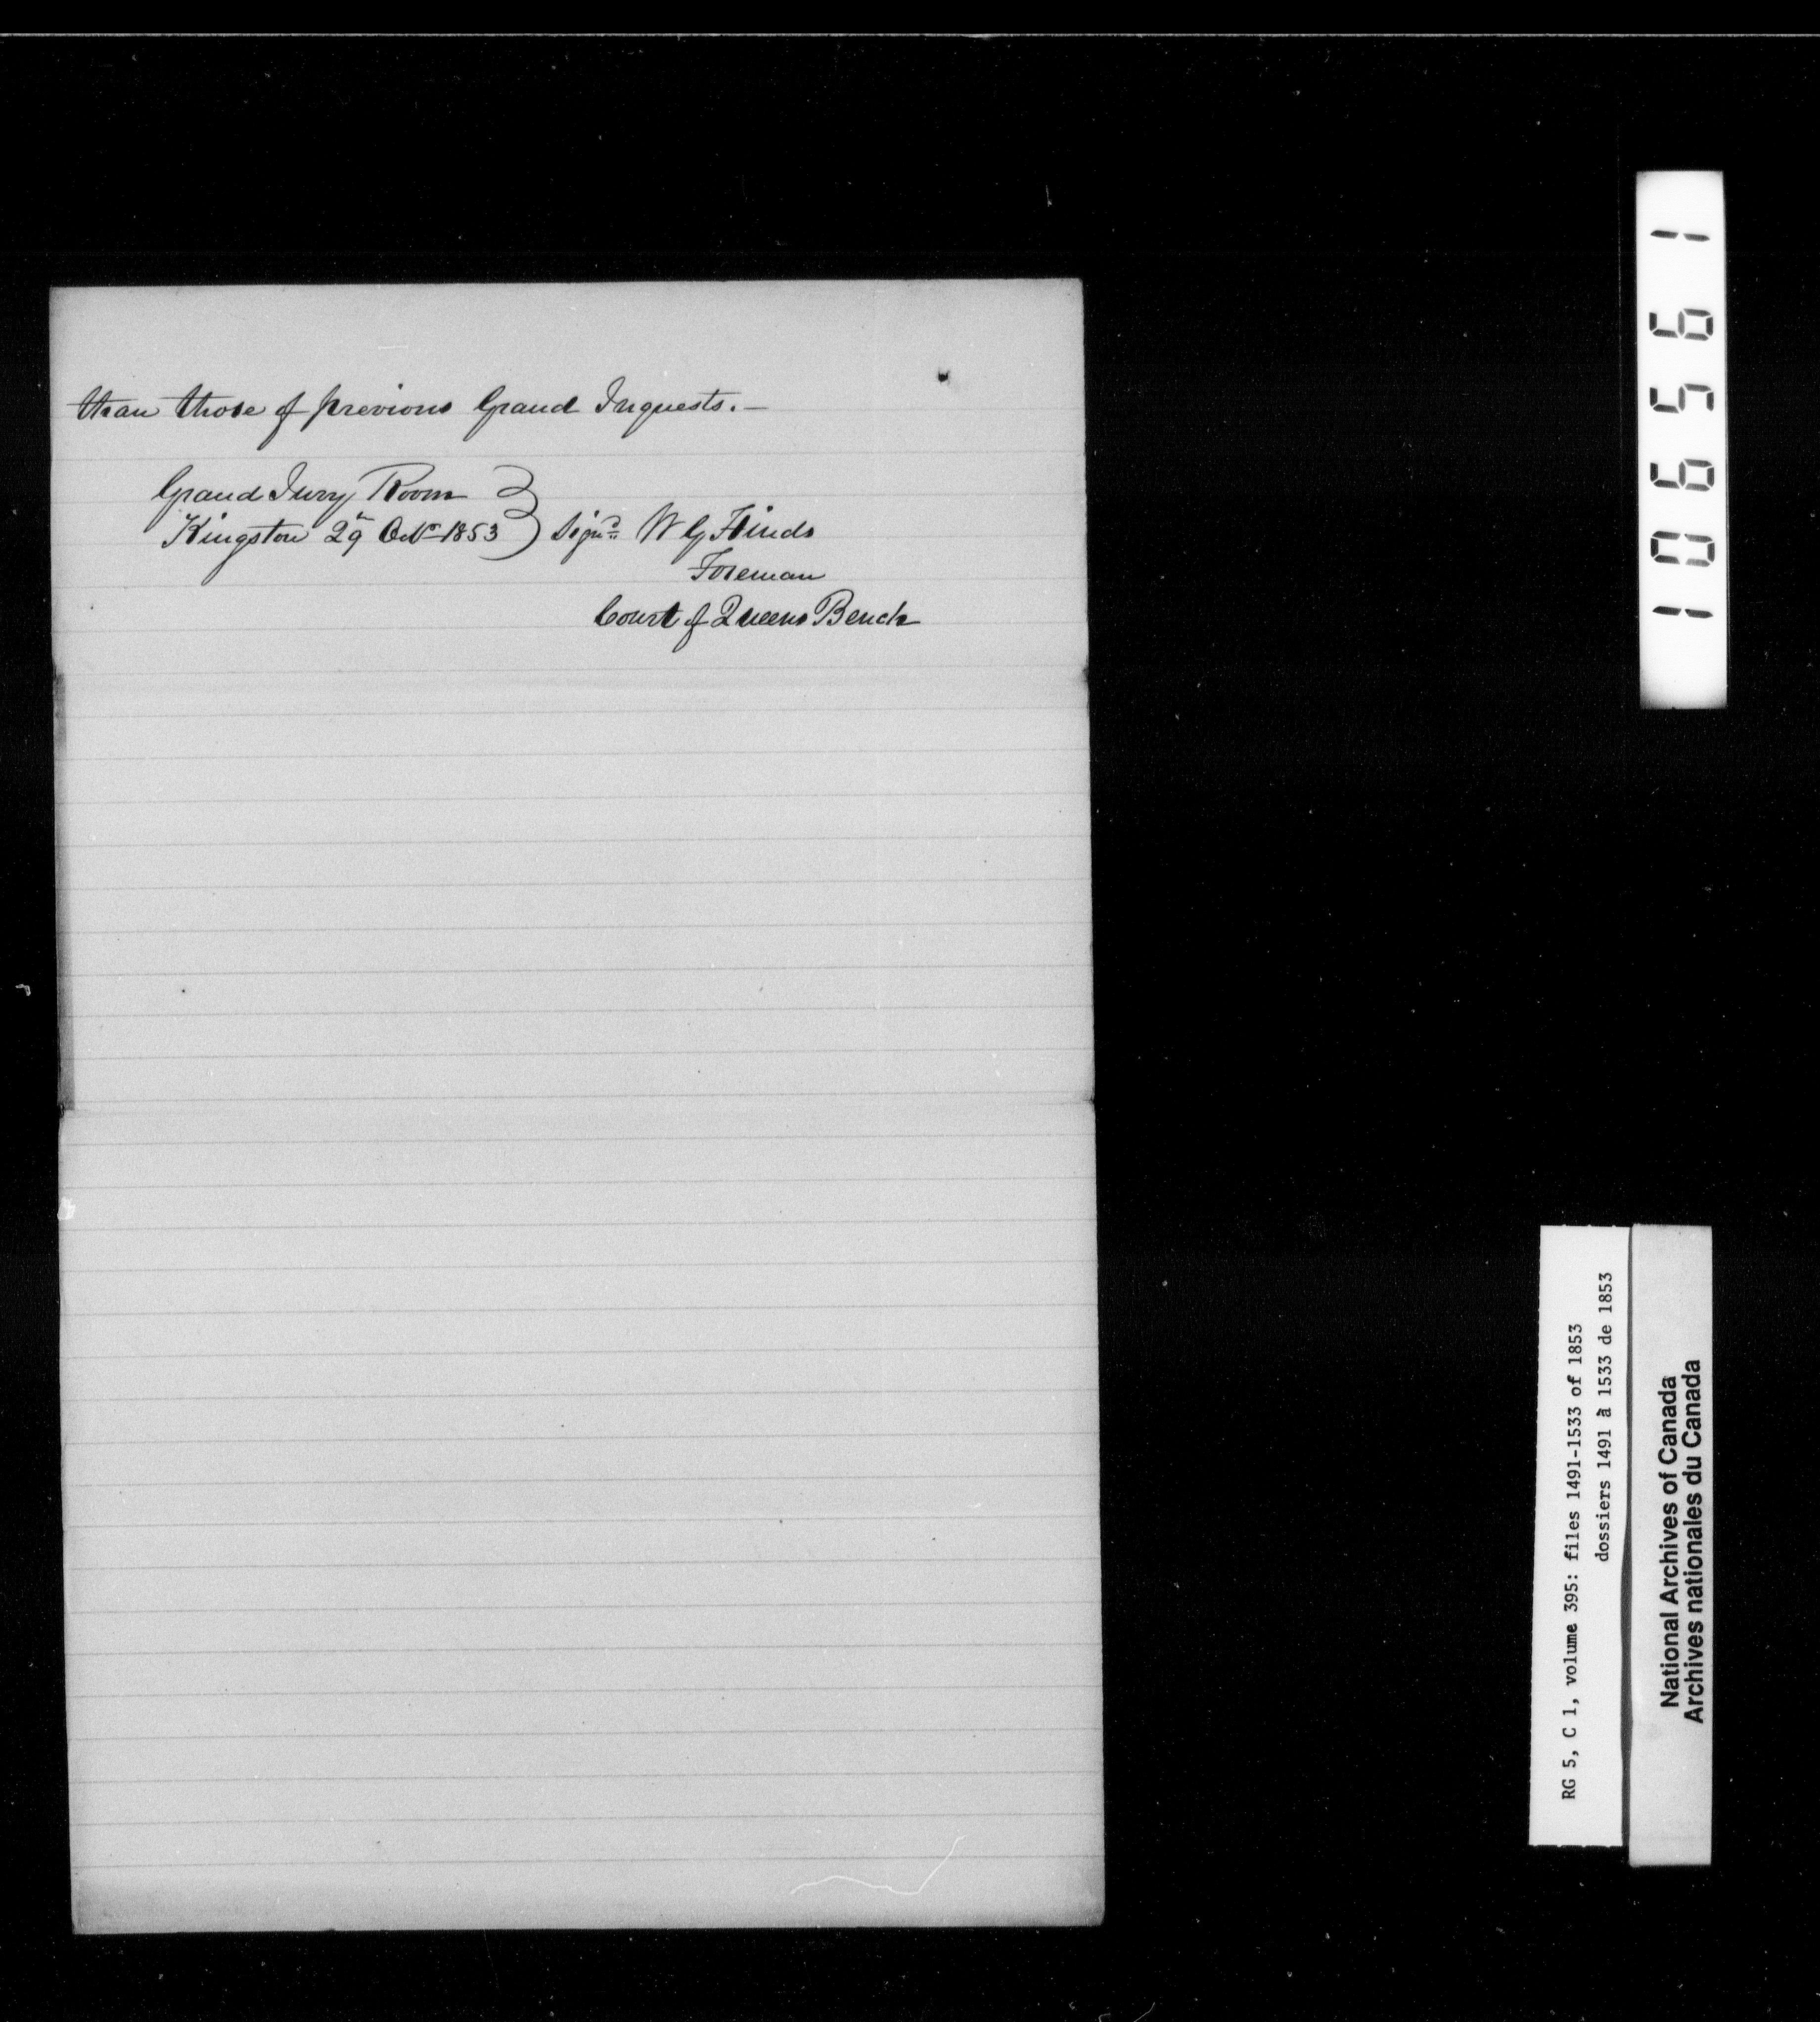 than those of previous Grand Inquests. —
Grand Jury Room
Kingston 29th Octr 1853 } Signd W G Hinds
Foreman
Court of Queens Bench
106561
RG 5, C 1, volume 395: files 1491-1533 of 1853
dossiers 1491 à 1533 de 1853
National Archives of Canada
Archives nationales du Canada